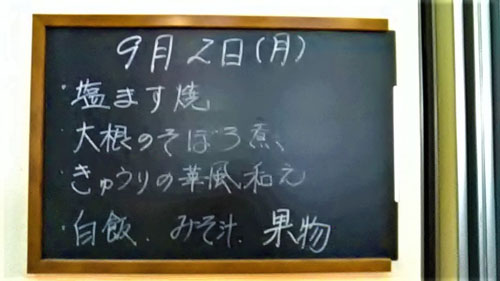 9月2日(月)
・塩ます焼
大根のそぼろ煮、
・きゅうりの華風和え
・白飯、みそ汁、果物